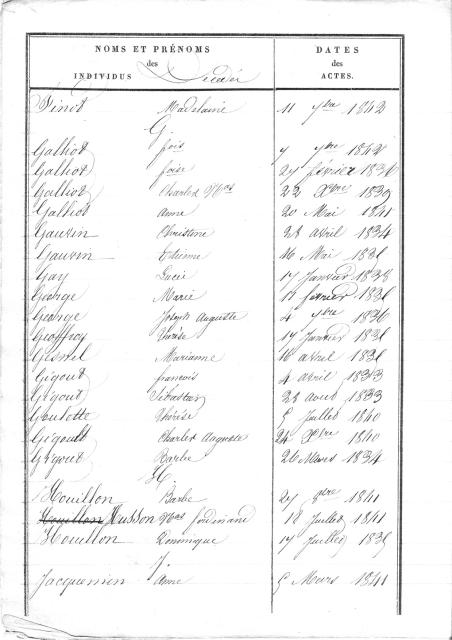 NOMS ET PRÉNOMS
des
INDIVIDUS Décédés
DATES
des
ACTES.
Finot Madelaine 11 7bre 1842
G.
Galliot fois 7 7bre 1842
Galliot foise 27 février 1836
Galliot Charles Nas 22 Xbre 1839
Galliot Anne 20 Mai 1841
Gauzin Christine 28 avril 1834
Gauzin Etienne 16 Mai 1831
Gay Lucie 17 Janvier 1838
George Marie 11 février 1831
George Joseph Auguste 4 7bre 1836
Geoffroy Thérèse 17 Janvier 1831
Gesnel Marianne 16 avril 1831
Gigout françois 4 avril 1833
Gigout Sébastien 23 aout 1833
Goulotte Thérèse 5 Juillet 1840
Gigoult Charles Auguste 24 Xbre 1840
Gigout Barbe 26 Mars 1834
H.
Houillon Barbe 27 8bre 1841
Houillon Husson Nas ferdinand 18 Juillet 1841
Houillon Dominique 17 Juillet 1835
J.
Jacquemin Anne 5 Mars 1841